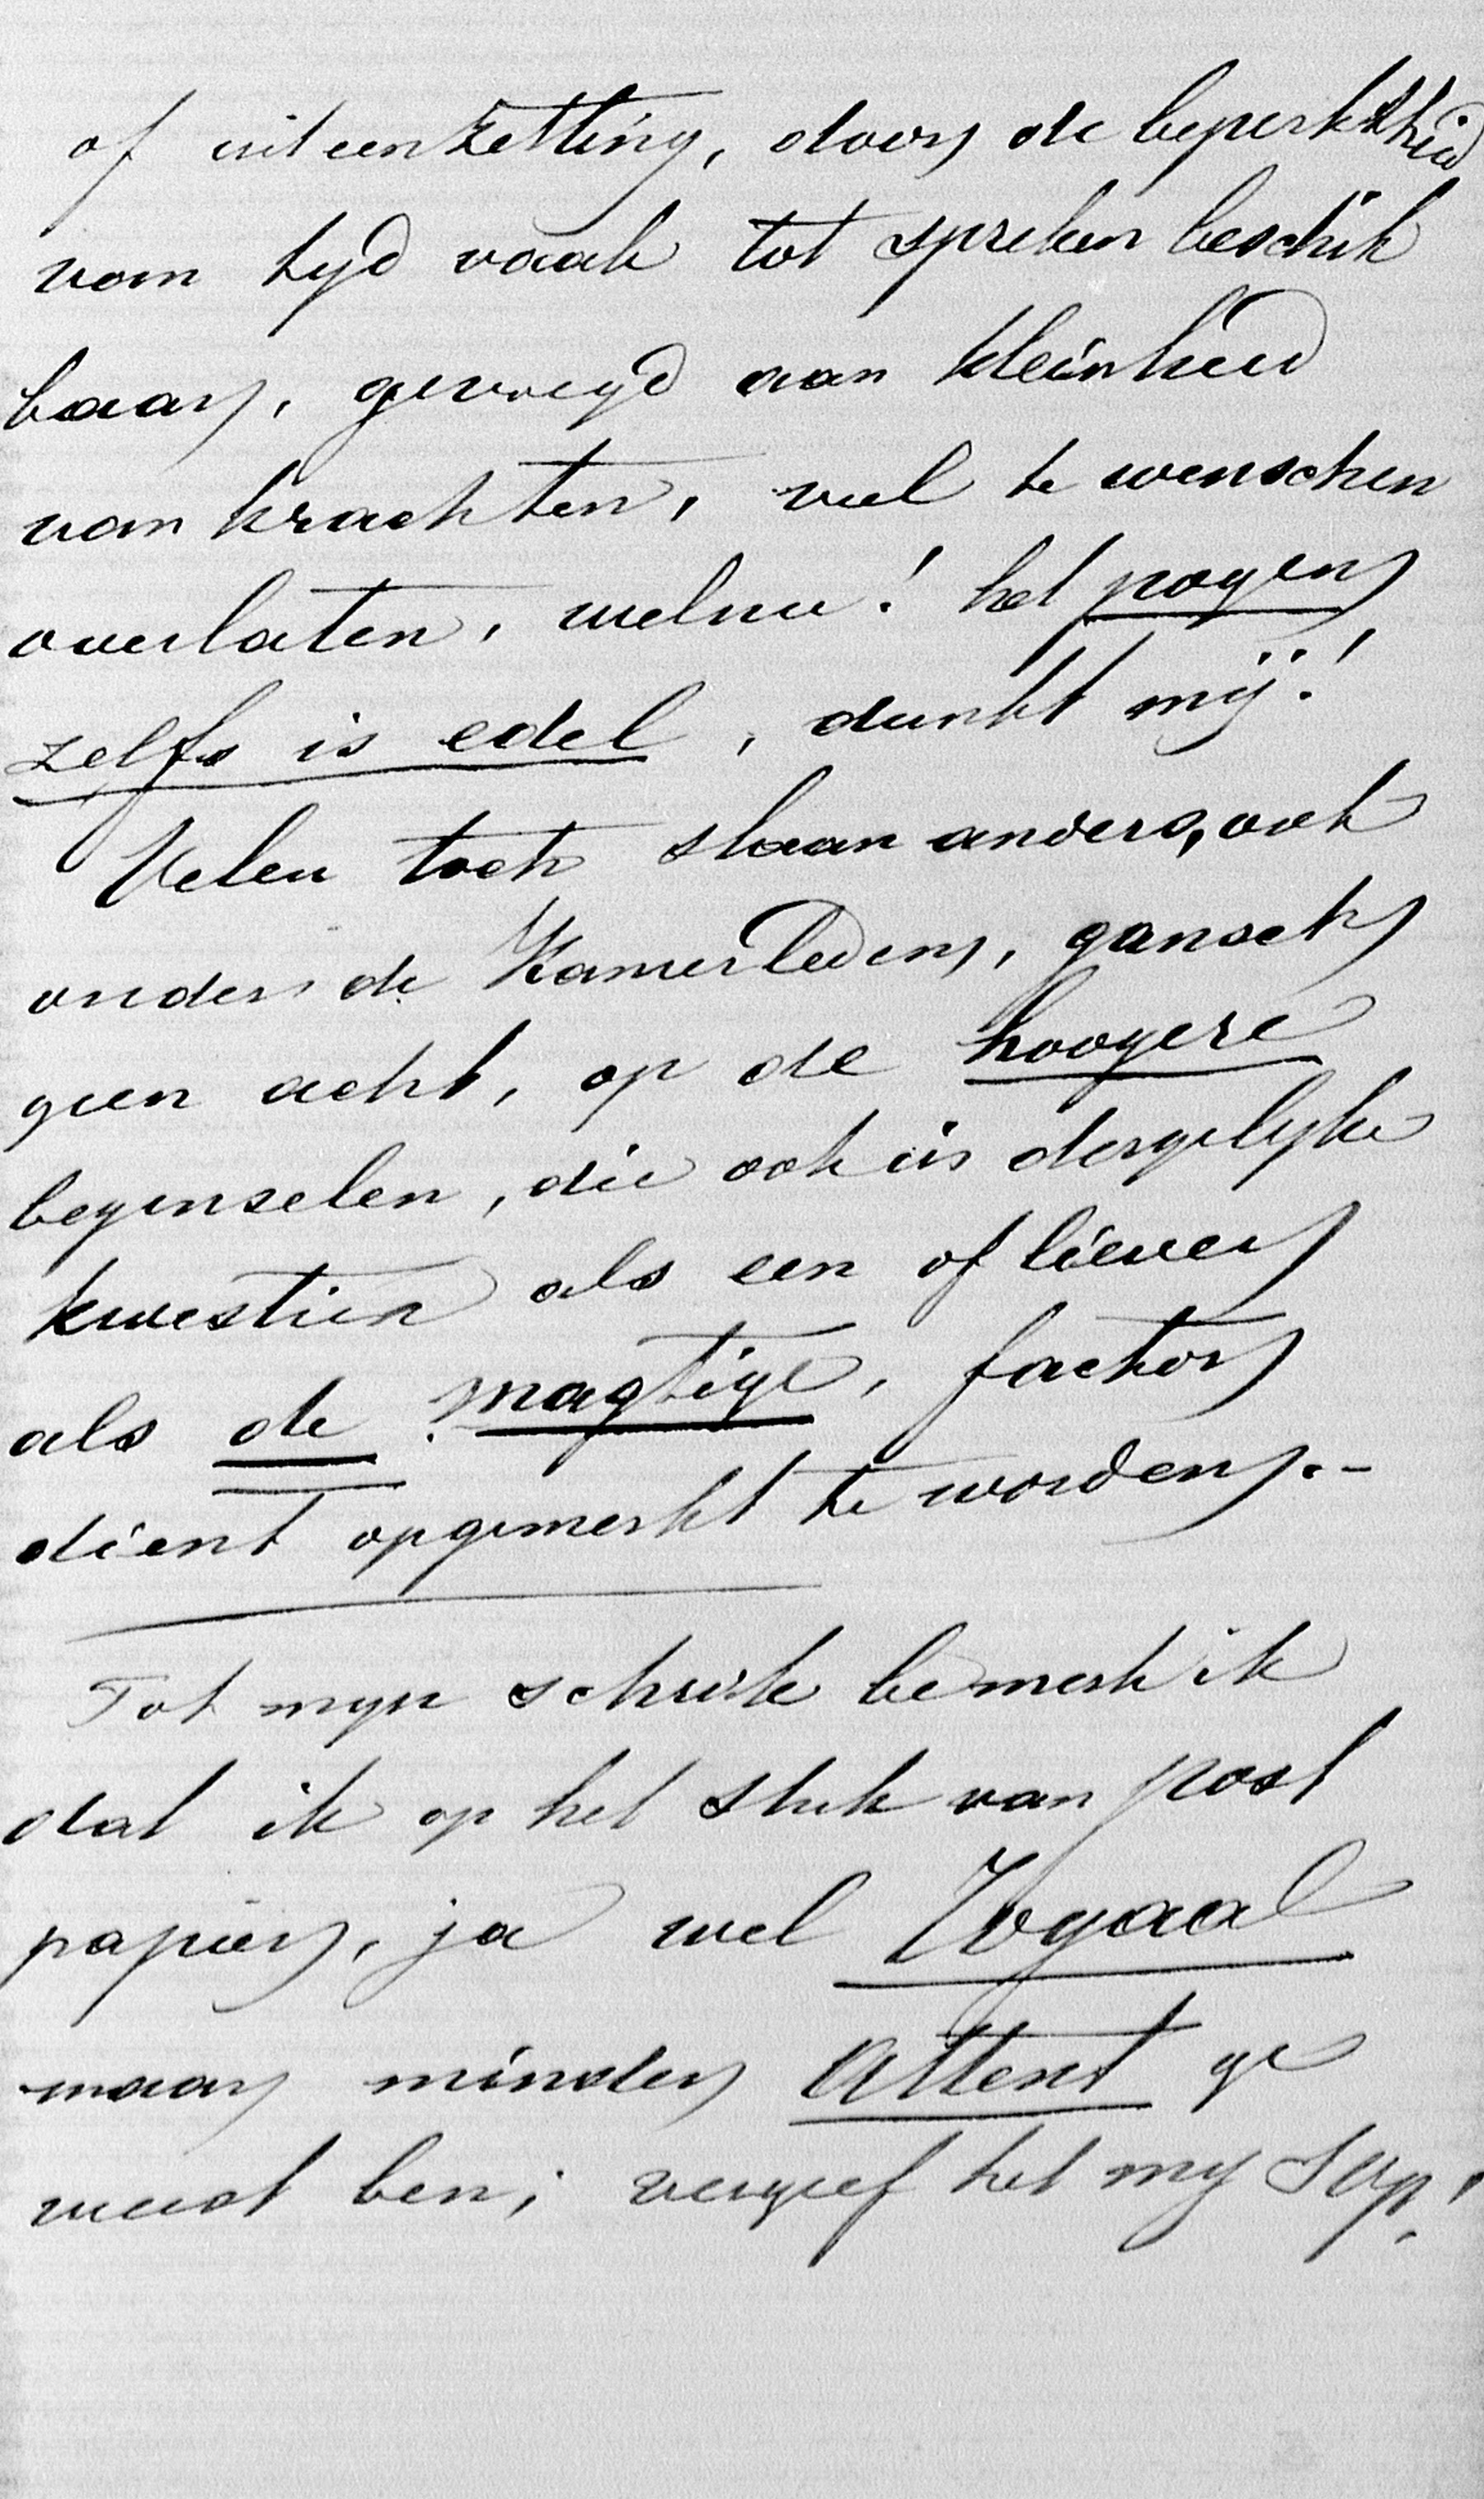 of uiteenzetting, door de beperktheid
van tyd vaak tot spreken beschik
baar, gevoegd aan kleinheid
van krachten, veel te wenschen
overlaten, welnu! het pogen
zelfs is edel, dunkt mij!
Velen toch slaan anders, ook
onder de Kamerleden, gansch
geen acht, op de hoogere
beginselen, die ook in dergelyke
kwestien als een of liever
als de magtige, factor
dient opgemerkt te worden.-
Tot myn schrik bemerk ik
dat ik op het stuk van post
papier, ja wel
maar minder attent ge
weest ben; vergeef het my